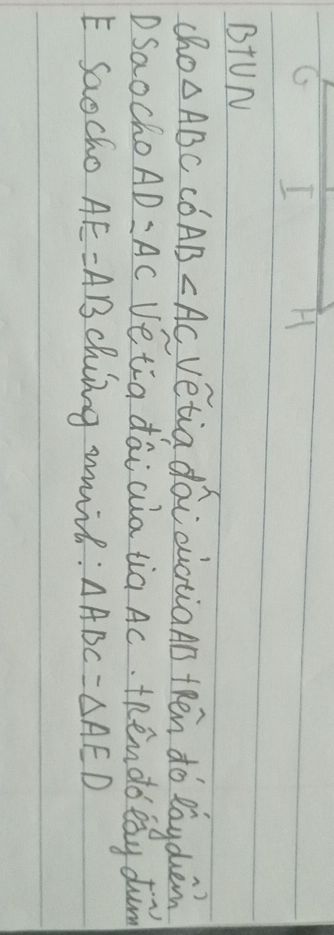 G I H
BTVN
cho △ABC có AB < AC vẽ tia đối của tia AB trên đó lấy điểm
D sao cho AD = AC vẽ tia đối của tia AC. trên đó lấy điểm
E sao cho AE = AB chứng minh: △ABC = △AED